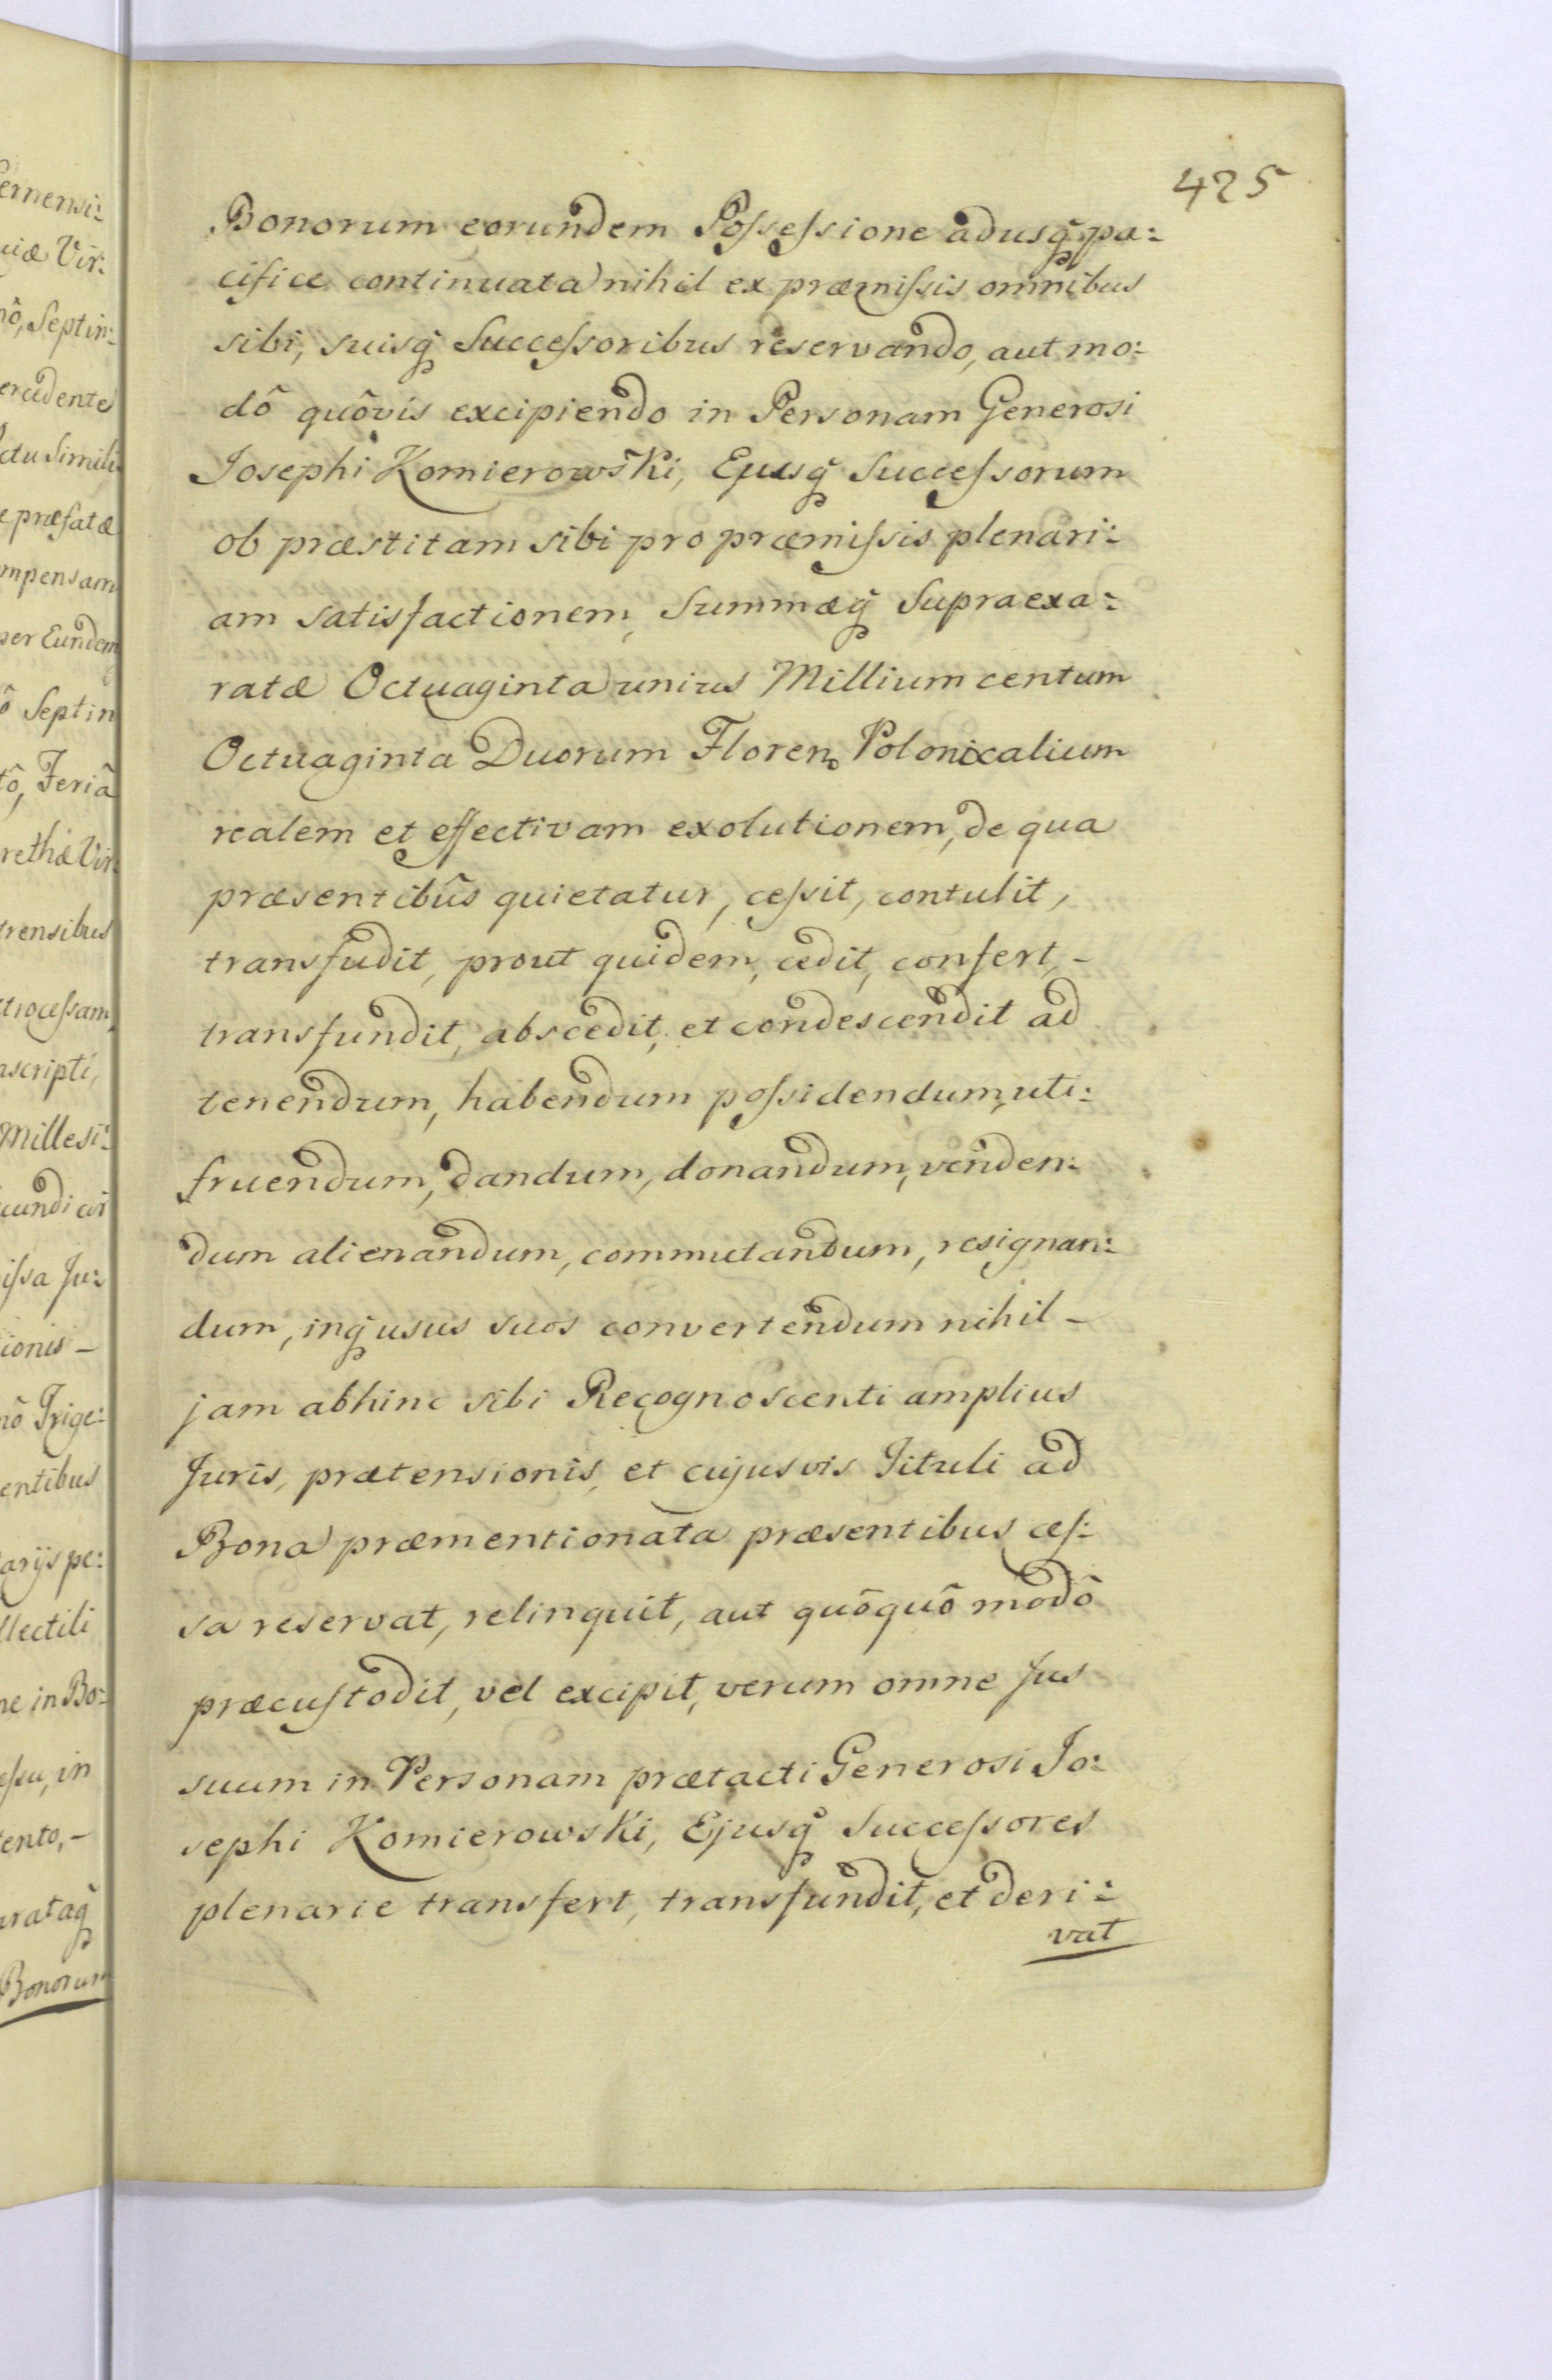 425
Bonorum eorundem Possessione adusq̃ pa:
cifice continuata nihil ex præmissis omnibus
sibi, suisq̃ Successoribus reservando, aut mo:
dô quôvis excipiendo in Personam Generosi
Josephi Komierowski, Ejusq̃ Successorum
ob præstitam sibi pro præmissis plenari:
am satisfactionem, Summæq̃ Supraexa:
ratæ Octuaginta unius Millium centum
Octuaginta Duorum Floren. Polonicalium
realem et effectivam exolutionem, de qua
præsentibûs quietatur, cessit, contulit,
transfudit, prout quidem, cedit, confert, -
transfundit, abscedit, et condescendit ad
tenendum, habendum possidendum, uti:
fruendum, dandum, donandum, venden:
dum alienandum, commutandum, resignan:
dum, inq̃ usus suos convertendum nihil -
jam abhinc sibi Recognoscenti amplius
Juris, prætensionis, et cujusvis Tituli ad
Bona præmentionata præsentibus ces:
sa reservat, relinquit, aut quôquô modô
præcustodit, vel excipit, verum omne Jus
suum in Personam prætacti Generosi Jo:
sephi Komierowski, Ejusq̃ Successores
plenarie transfert, transfundit, et deri:
vat
ernensi:
Vir:
nô, Septin:
ercedente
ctu Simili
e præfatæ
mpensam
per Eundem
ô Septin
tô, Feriâ
rethæ Vir:
trensibus
ctrocessam
ascripti,
Millesi:
issa Ju:
ionis -
nô Trige:
entibus
arijs pe:
llectili
ne in Bo:
essu, in
ento, -
arataq̃
Bonorum